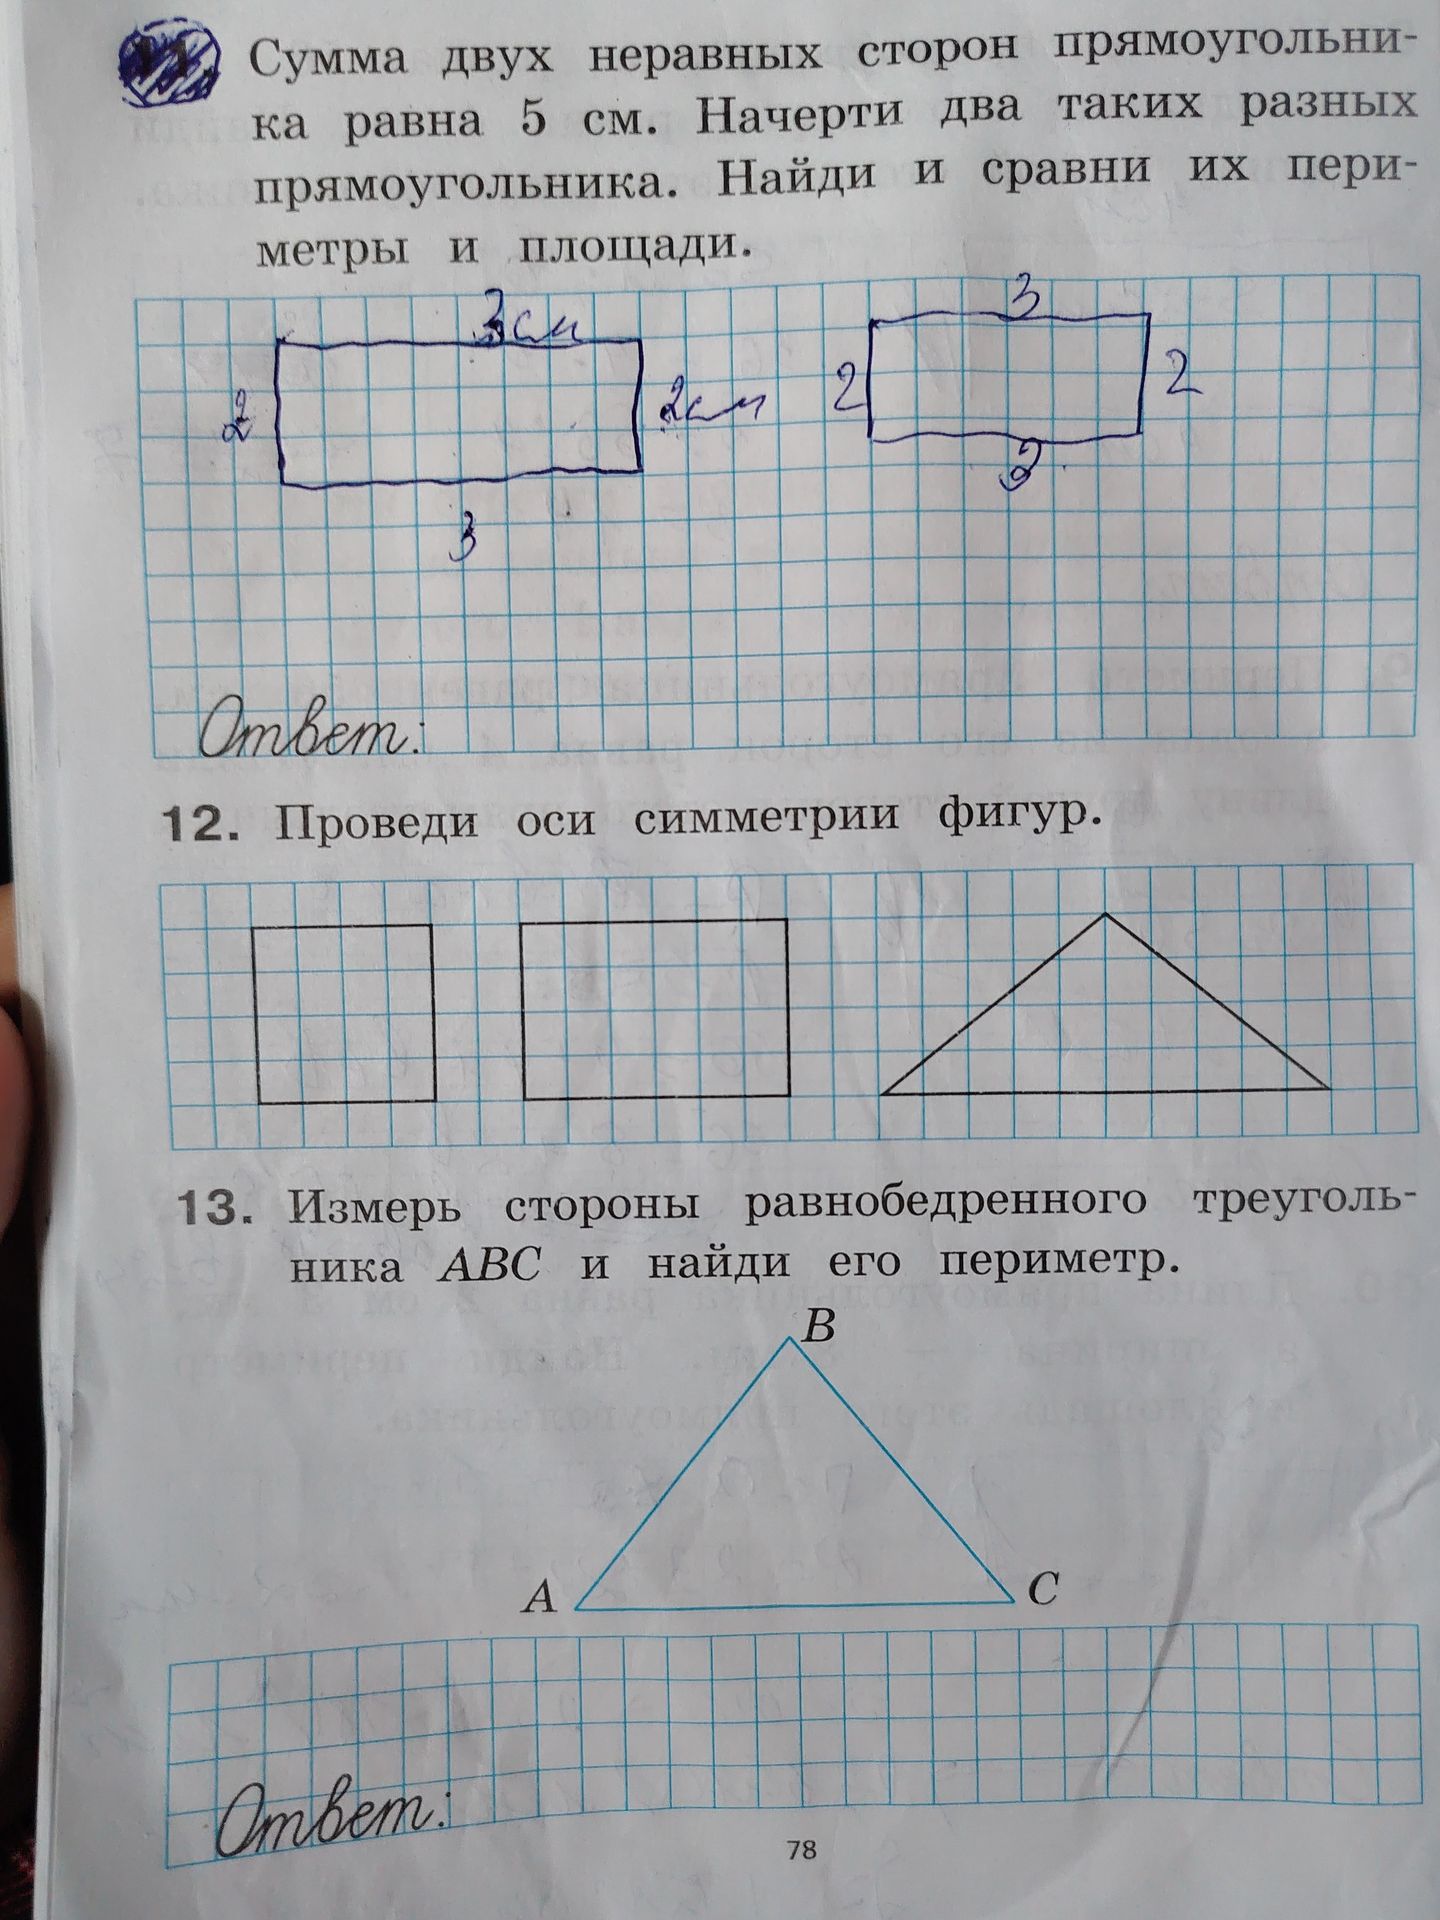 11 Сумма двух неравных сторон прямоугольни-
ка равна 5 см. Начерти два таких разных
прямоугольника. Найди и сравни их пери-
метры и площади.
3см
3
2
2см
2
2
3
2
Ответ:
12. Проведи оси симметрии фигур.
13. Измерь стороны равнобедренного треуголь-
ника ABC и найди его периметр.
B
A
C
Ответ:
78